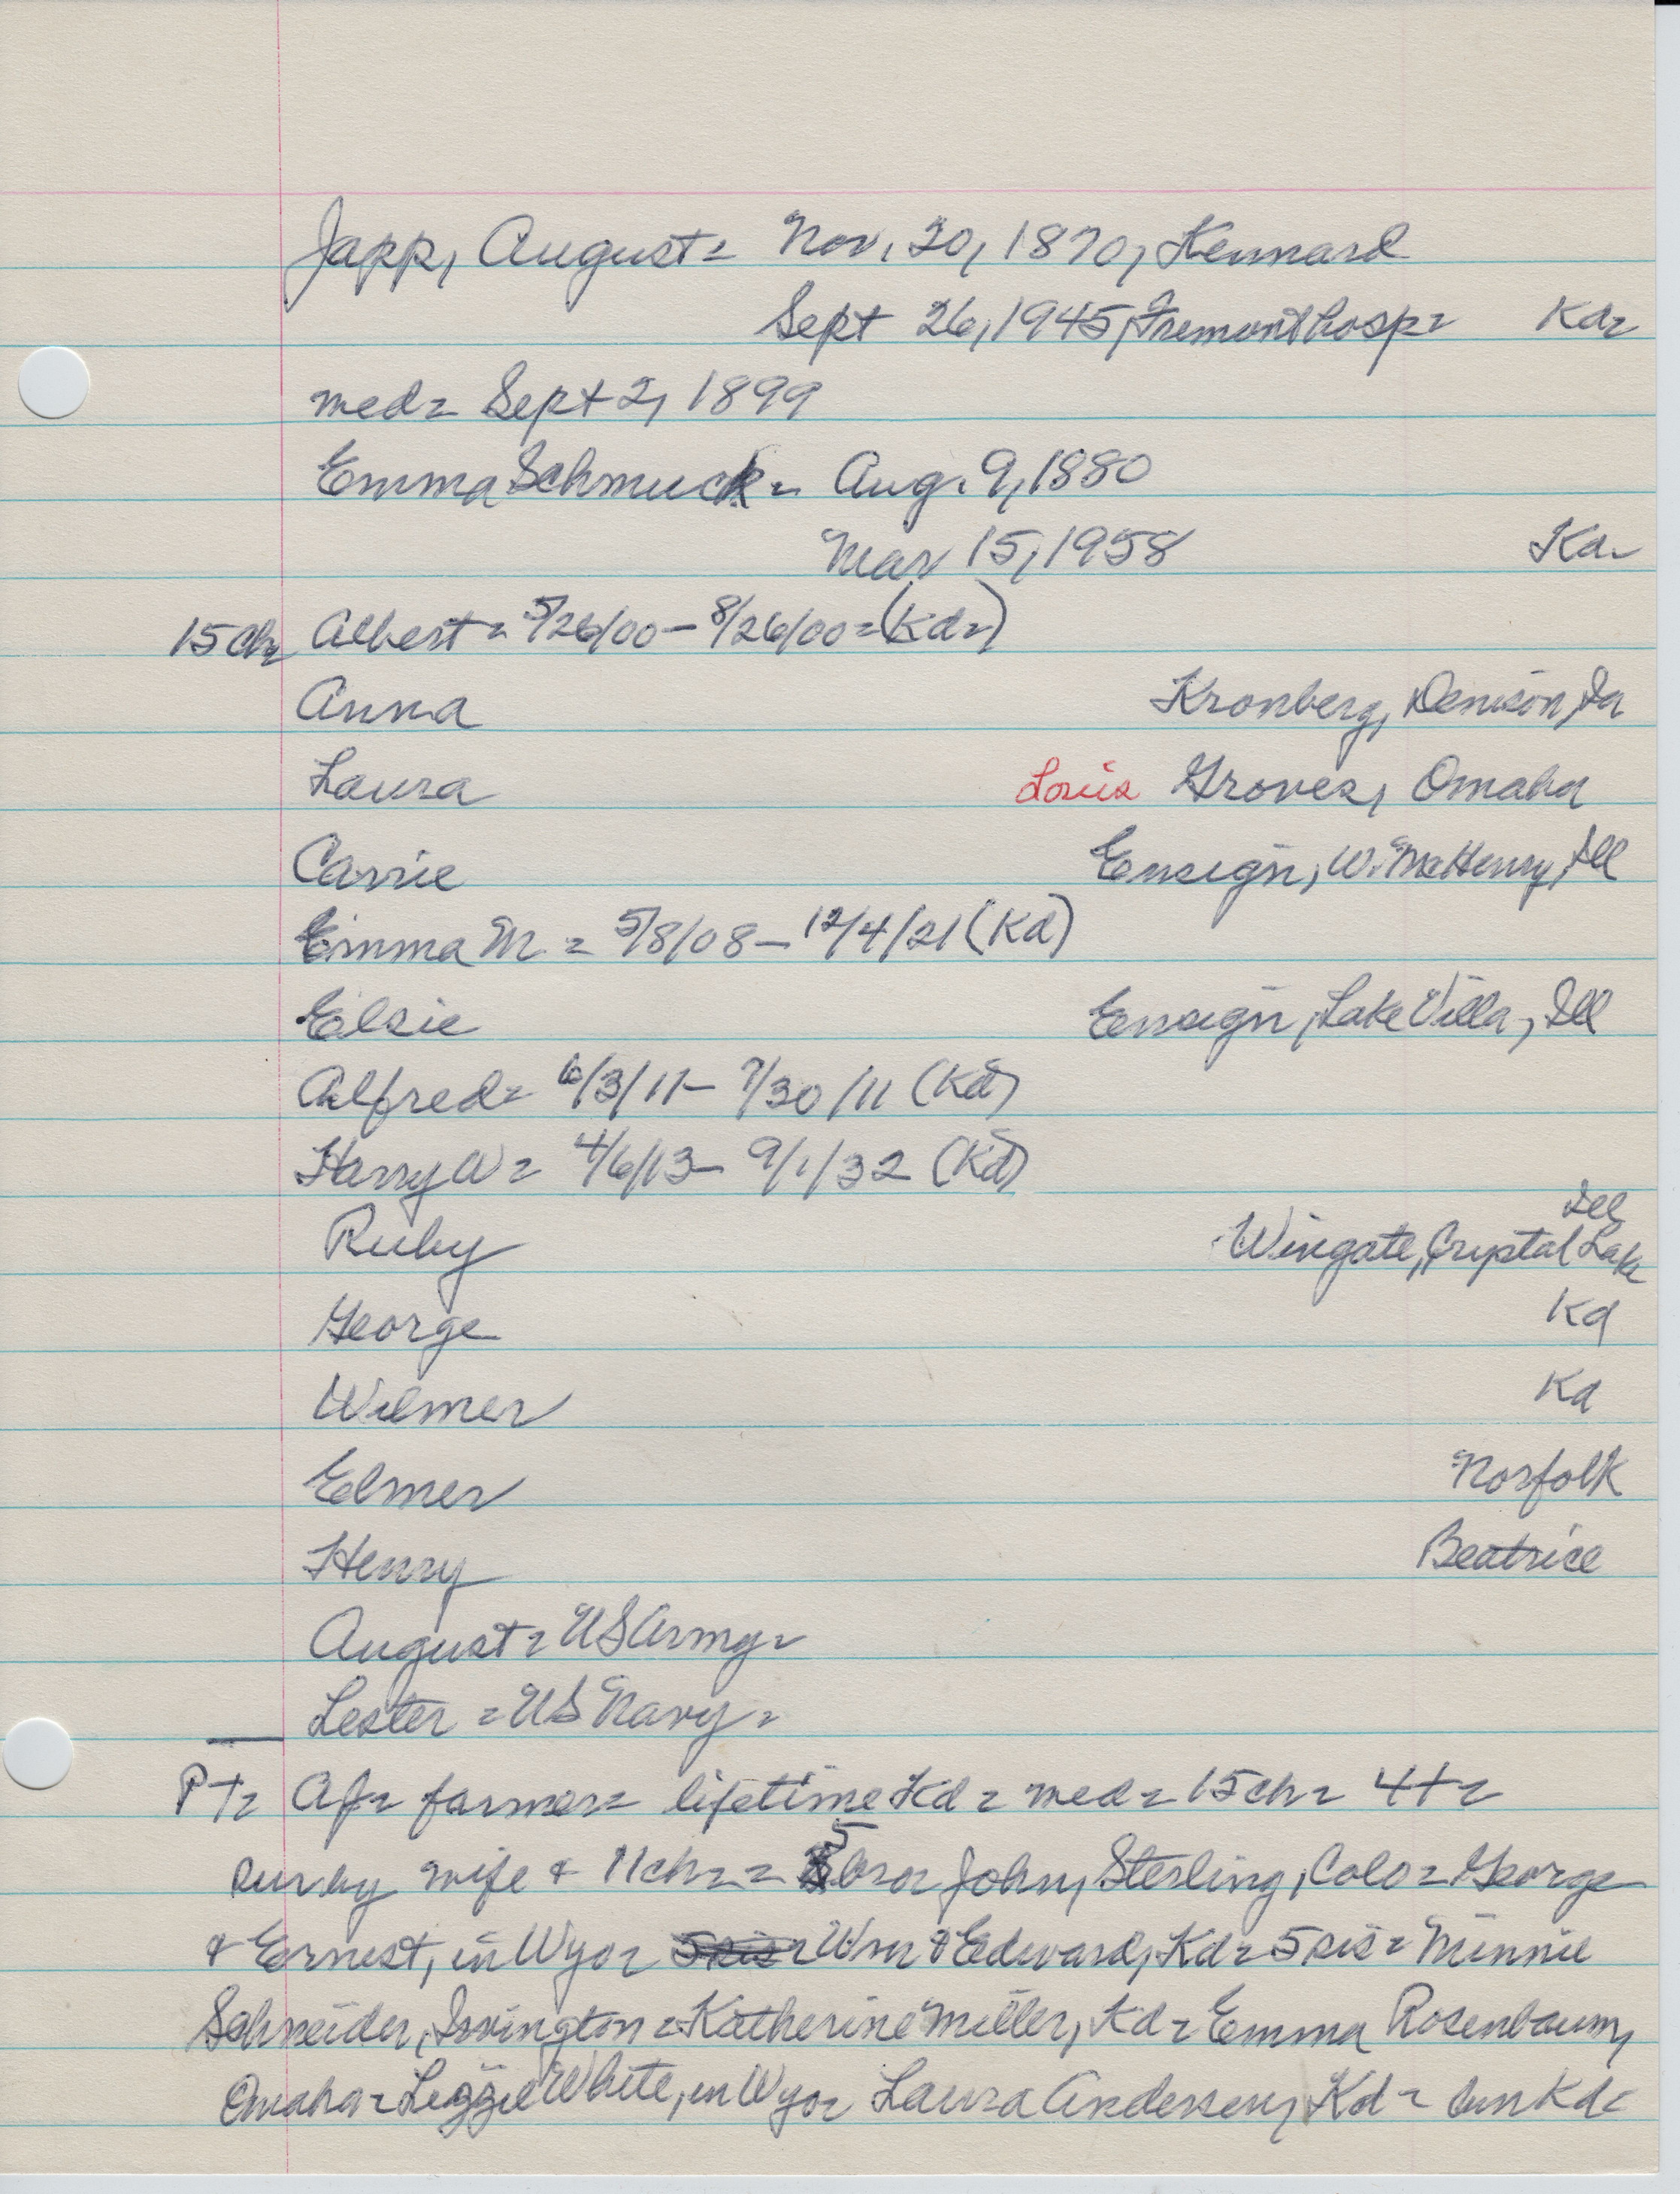 Japp, August = Nov. 20, 1870, Kennard
Sept 26, 1945, Fremont hosp = Kd =
med = Sept 2, 1899
Emma Schmuck = Aug. 9, 1880
Mar 15, 1958 Kd -
15 ch = Albert = 5/26/00 - 8/26/00 = (Kd =)
Anna Kronberg, Denison, Ia
Laura Louis Groves, Omaha
Carrie Ensign, W. McHenry, Ill
Emma M = 5/8/08 - 12/4/21 (Kd)
Elsie Ensign, Lake Villa, Ill
Alfred = 6/3/11 - 7/30/11 (Kd)
Harry W = 4/6/13 - 9/1/32 (Kd)
Ill
Ruby Wingate, Crystal Lake
George Kd
Wilmer Kd
Elmer Norfolk
Henry Beatrice
August = US Army =
Lester = US Navy =
PT = AJ = farmer = lifetime Kd = med = 15 ch = 4 + =
sur by wife & 11 ch = = 5 bro = John, Sterling, Colo = George
& Ernest, in Wyo = 5 sis = Wm & Edward, Kd = 5 sis = Minnie
Schneider, Irvington = Katherine Miller, Kd = Emma Rosenbaum,
Omaha = Lizzie White, in Wyo = Laura Andersen, Kd = bur Kd =